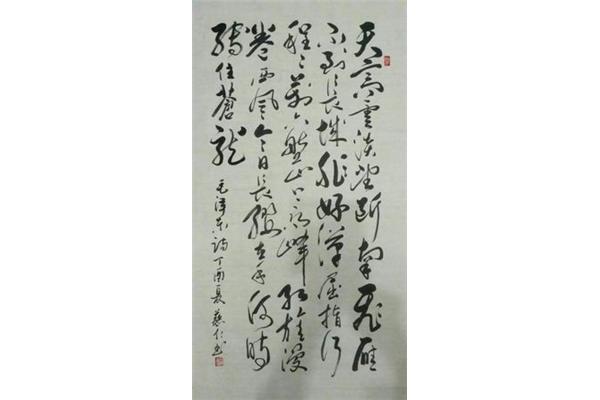 天高雲淡望断南飛雁
不到长城非好漢屈指行
程二萬六盤山上高峰红旗漫
卷西風今日长缨在手何時
缚住蒼龍
毛泽东詩丁酉夏仁书